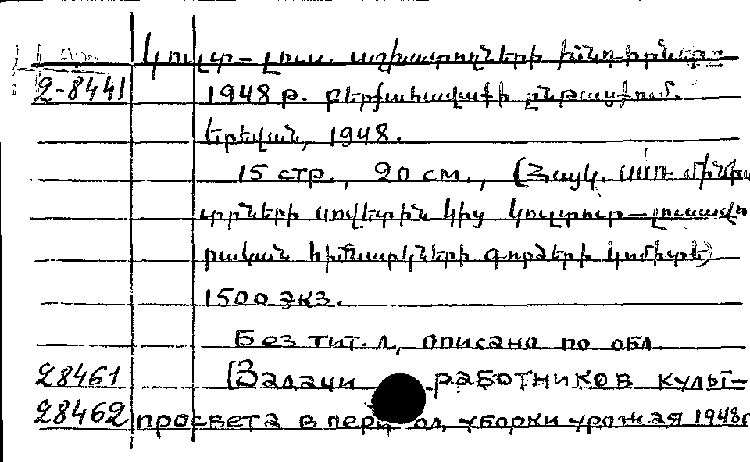 Կուլտ-լուս. աշխատողների խնդիրները
2-8441 1948 թ. բերքահավաքի ընթացքում.
Երևան, 1948.
15 стр., 20 см., (Հայկ. ՍՍՌ մինիս
տրների սովետին կից կուլտուր-լուսավո
րական հիմնարկների գործերի կոմիտե)
1500 экз.
Без тит. л, описано по обл.
28461 (Задачи работников культ-
28462 просвета в пер уборки урожая 1948г